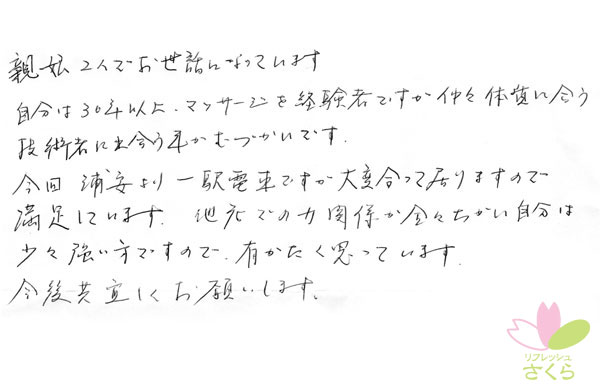 親娘2人でお世話になっています
自分は30年以上、マッサージを経験者ですが仲々体質に合う
技術者に出会う事がむづかいです。
今回 浦安より一駅電車ですが大変合って居りますので
満足しています。他店での力関係が全々ちがい自分は
少々強い方ですので、有がたく思っています。
今後共宜しくお願いします。
リフレッシュ
さくら